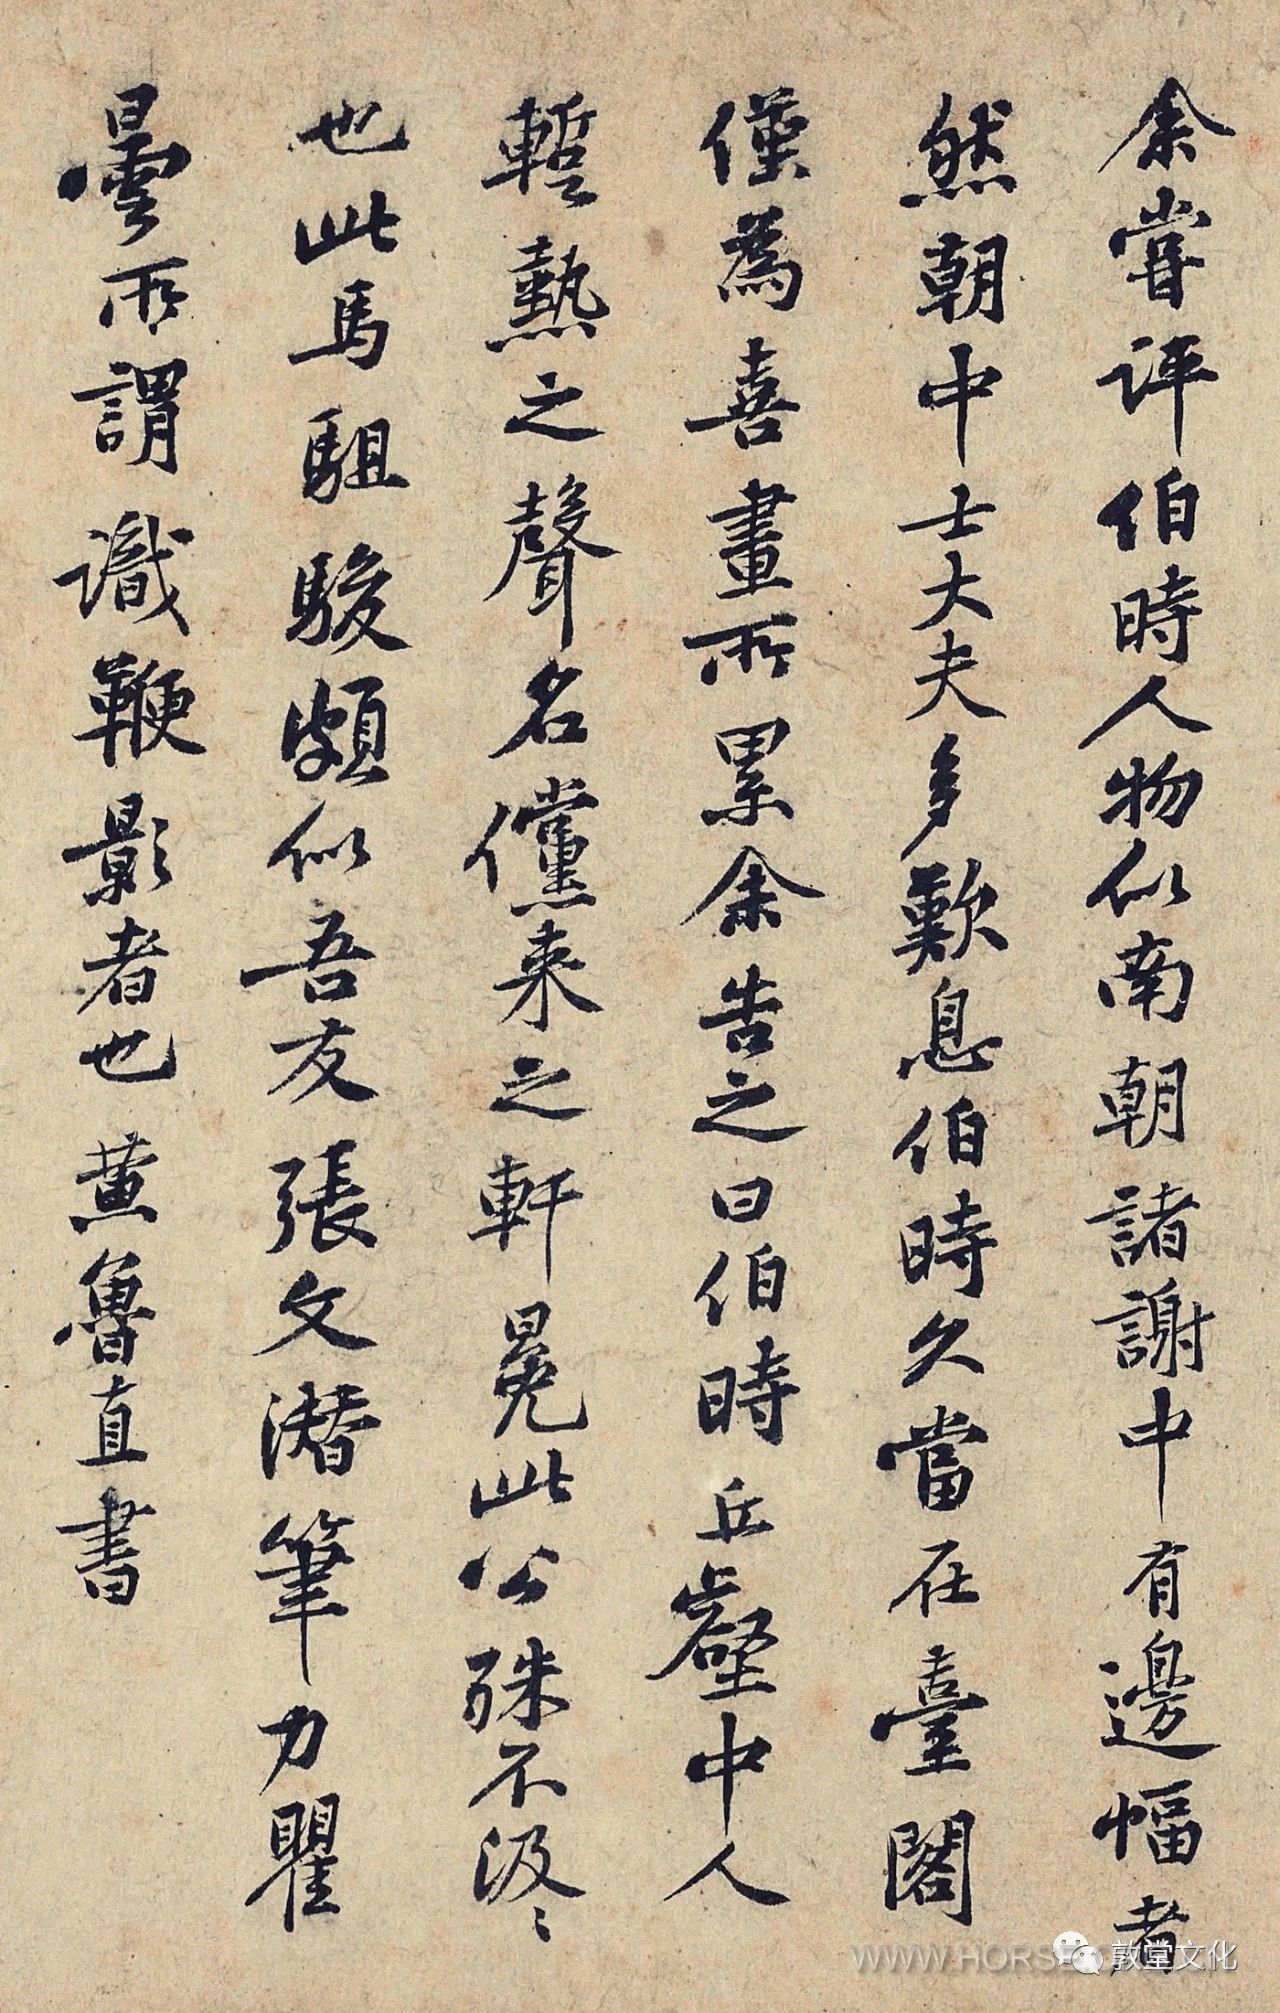 余嘗評伯時人物似南朝諸謝中有邊幅者
然朝中士大夫多歎息伯時久當在臺閣
僅為喜畫所累余告之曰伯時丘壑中人
暫熱之聲名儻来之軒冕此公殊不汲〻
也此馬駔駿頗似吾友張文潜筆力瞿
曇所謂識鞭影者也黄魯直書
WWW.HORSE
敦堂文化